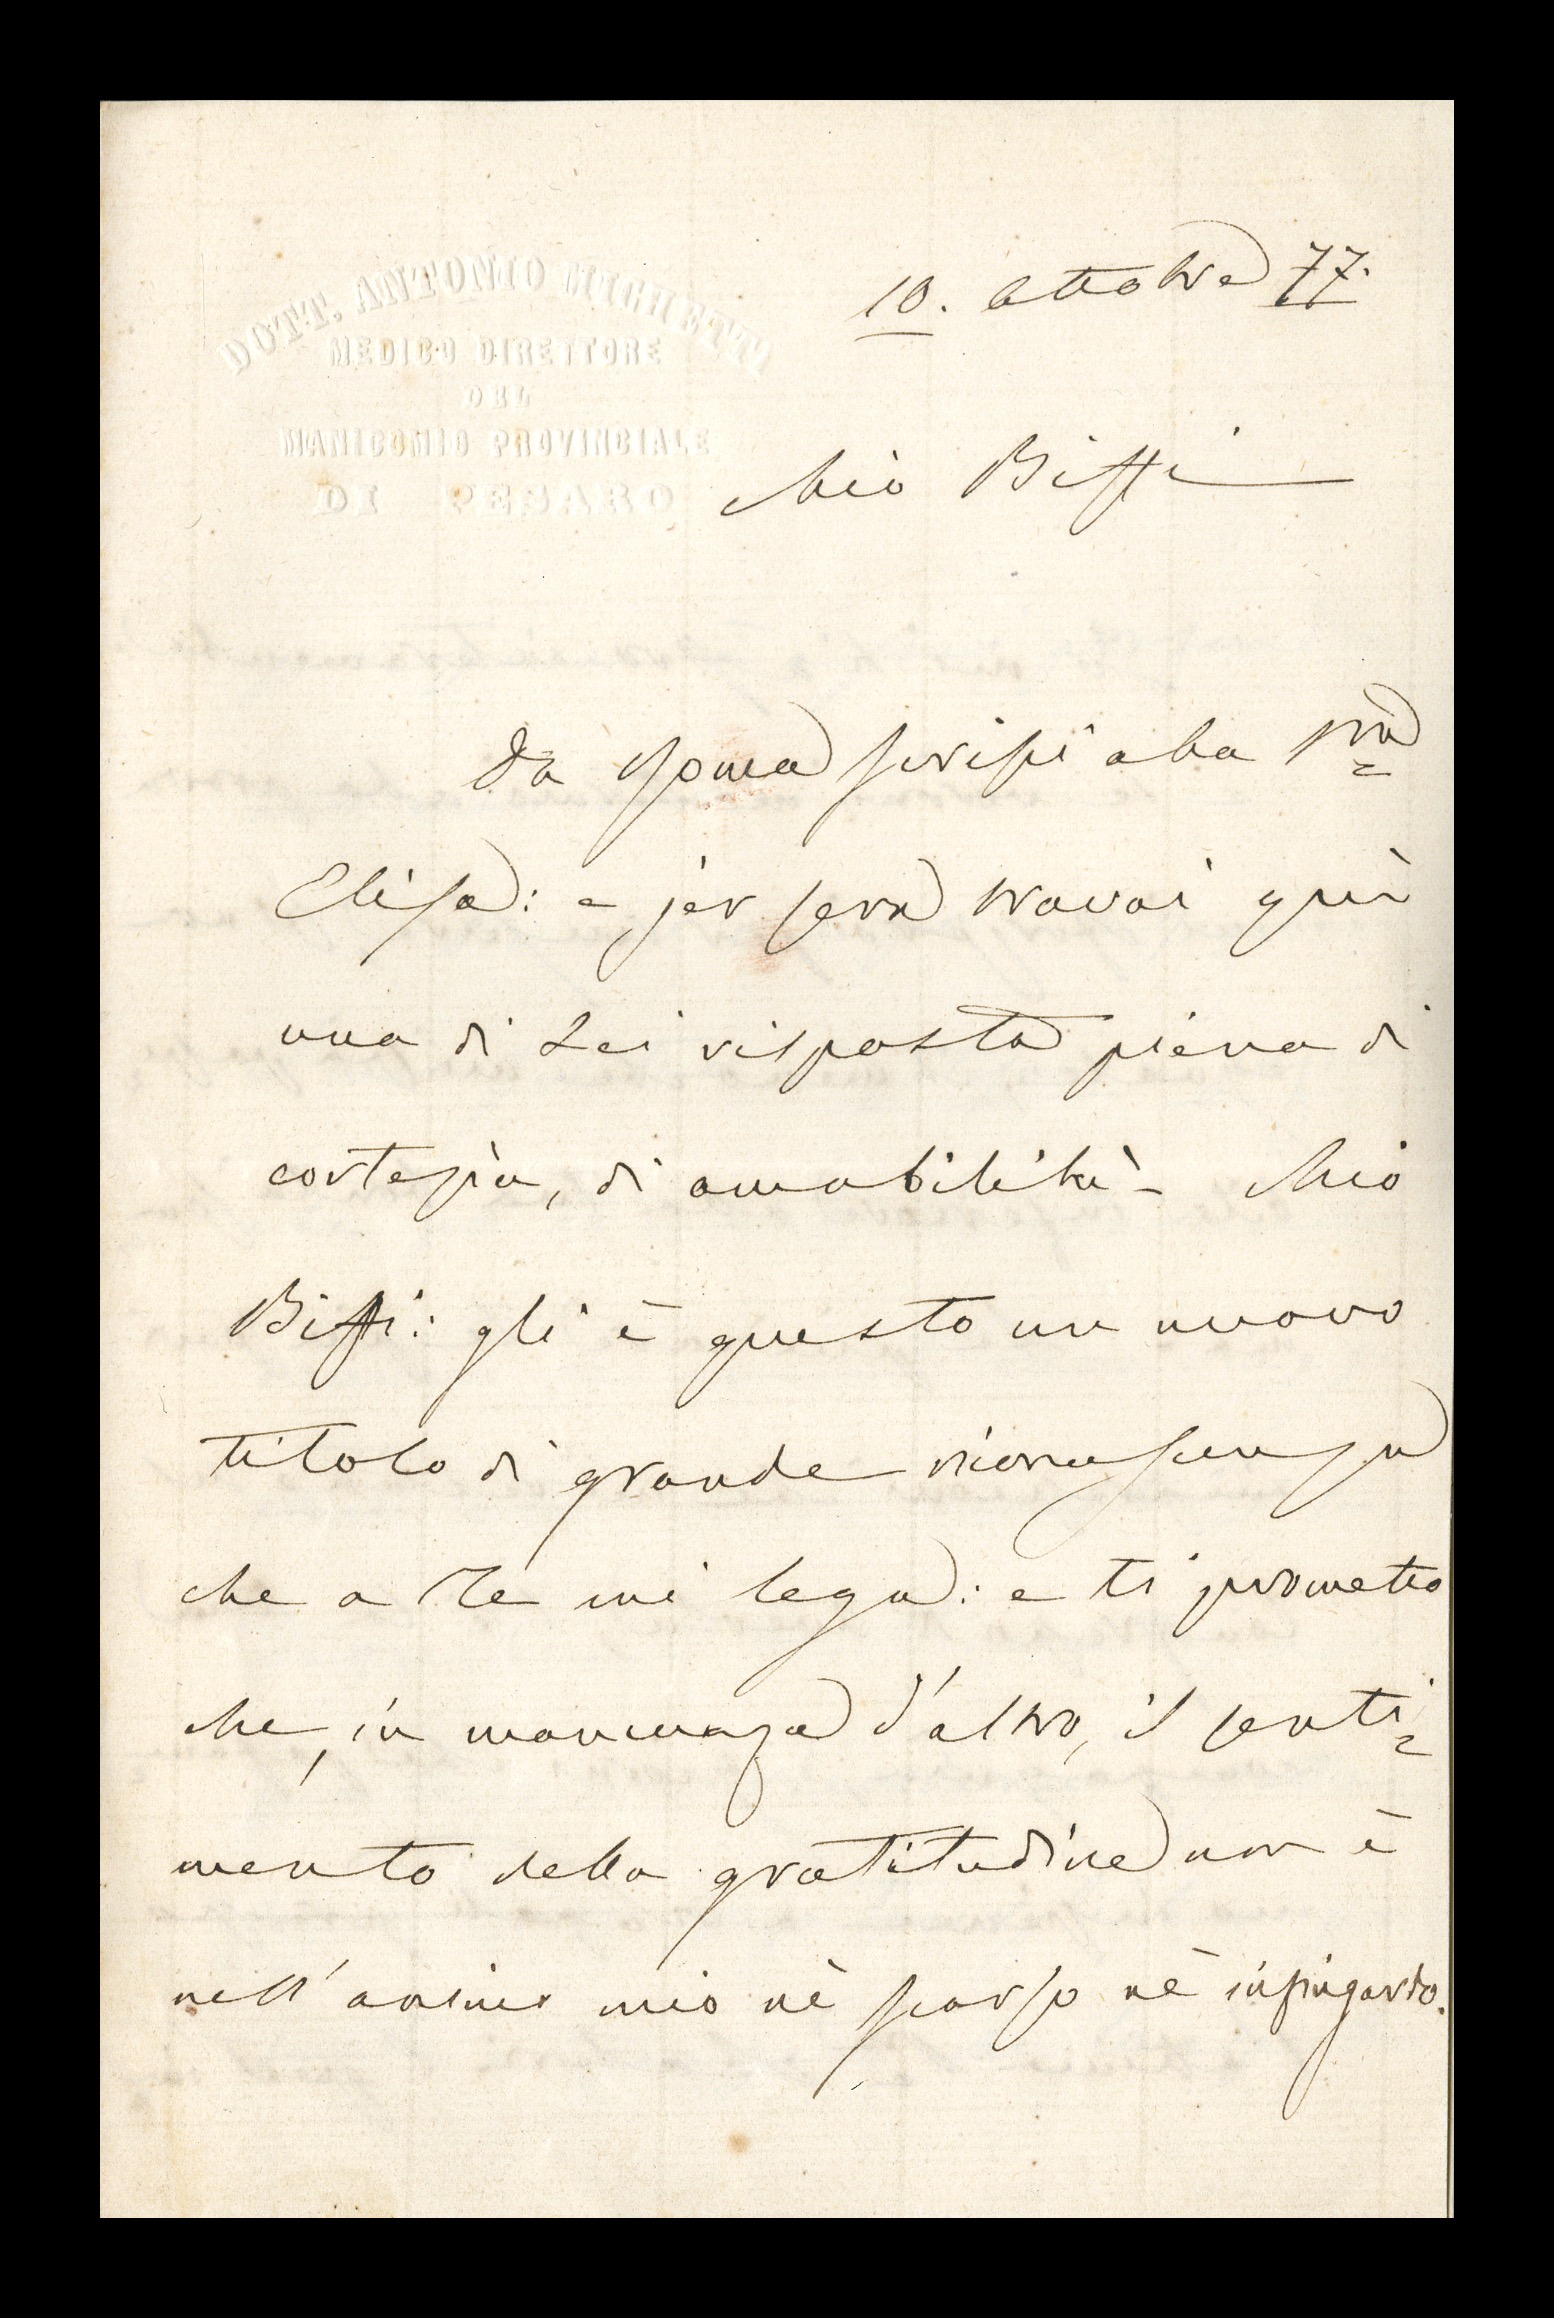 DOTT. ANTONIO MICHETTI
MEDICO DIRETTORE
DEL
MANICOMIO PROVINCIALE
DI PESARO
10. Ottobre 77.
Mio Biffi
Da Roma scrissi alla Sra
Elisa: e jer sera trovai quì
una di Lei risposta piena di
cortesia, di amabilità - Mio
Biffi: gli è questo un nuovo
titolo di grande riconoscenza
che a Te mi lega: e ti prometto
che, in mancanza d'altro, il senti=
mento della gratitudine non è
nell'animo mio nè scarso nè infingardo.